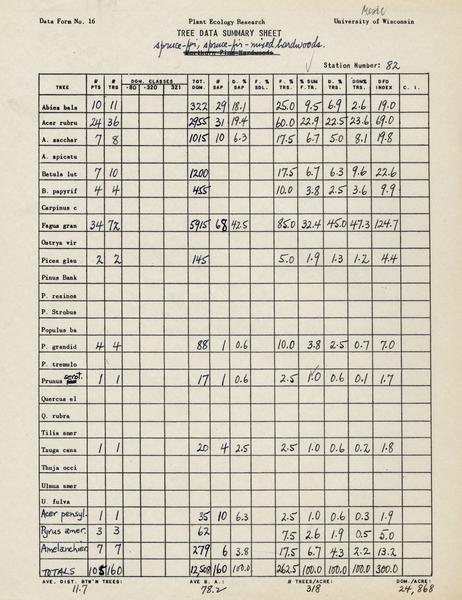 Data Form No. 16 Plant Ecology Research University of Wisconsin
TREE DATA SUMMARY SHEET
spruce-fir, spruce-fir-mixed hardwoods.
Station Number: 82
TREE # PTS # TRS DOM. CLASSES -80 -320 321 TOT. DOM # SAP D. % SAP F. % SDL. F. % TRS. % SUM F.TR. D. % TRS. DOM% TRS. DFD INDEX C. I.
Abies bala 10 11 322 29 18.1 25.0 9.5 6.9 2.6 19.0
Acer rubru 24 36 2955 31 19.4 60.0 22.9 22.5 23.6 69.0
A. sacchar 7 8 1015 10 6.3 17.5 6.7 5.0 8.1 19.8
A. spicatu
Betula lut 7 10 1200 17.5 6.7 6.3 9.6 22.6
B. papyrif 4 4 455 10.0 3.8 2.5 3.6 9.9
Carpinus c
Fagus gran 34 72 5915 68 42.5 85.0 32.4 45.0 47.3 124.7
Ostrya vir
Picea glau 2 2 145 5.0 1.9 1.3 1.2 4.4
Pinus Bank
P. resinos
P. Strobus
Populus ba
P. grandid 4 4 88 1 0.6 10.0 3.8 2.5 0.7 7.0
P. tremulo
Prunus serot. 1 1 17 1 0.6 2.5 1.0 0.6 0.1 1.7
Quercus el
Q. rubra
Tilia amer
Tsuga cana 1 1 20 4 2.5 2.5 1.0 0.6 0.2 1.8
Thuja occi
Ulmus amer
U. fulva
Acer pensyl. 1 1 35 10 6.3 2.5 1.0 0.6 0.3 1.9
Pyrus amer. 3 3 62 7.5 2.6 1.9 0.5 5.0
Amelanchier 7 7 279 6 3.8 17.5 6.7 4.3 2.2 13.2
TOTALS 105 160 12,508 160 100.0 262.5 100.0 100.0 100.0 300.0
AVE. DIST. BTW'N TREES: AVE B. A.: # TREES/ACRE: DOM./ACRE:
11.7 78.2 318 24,868